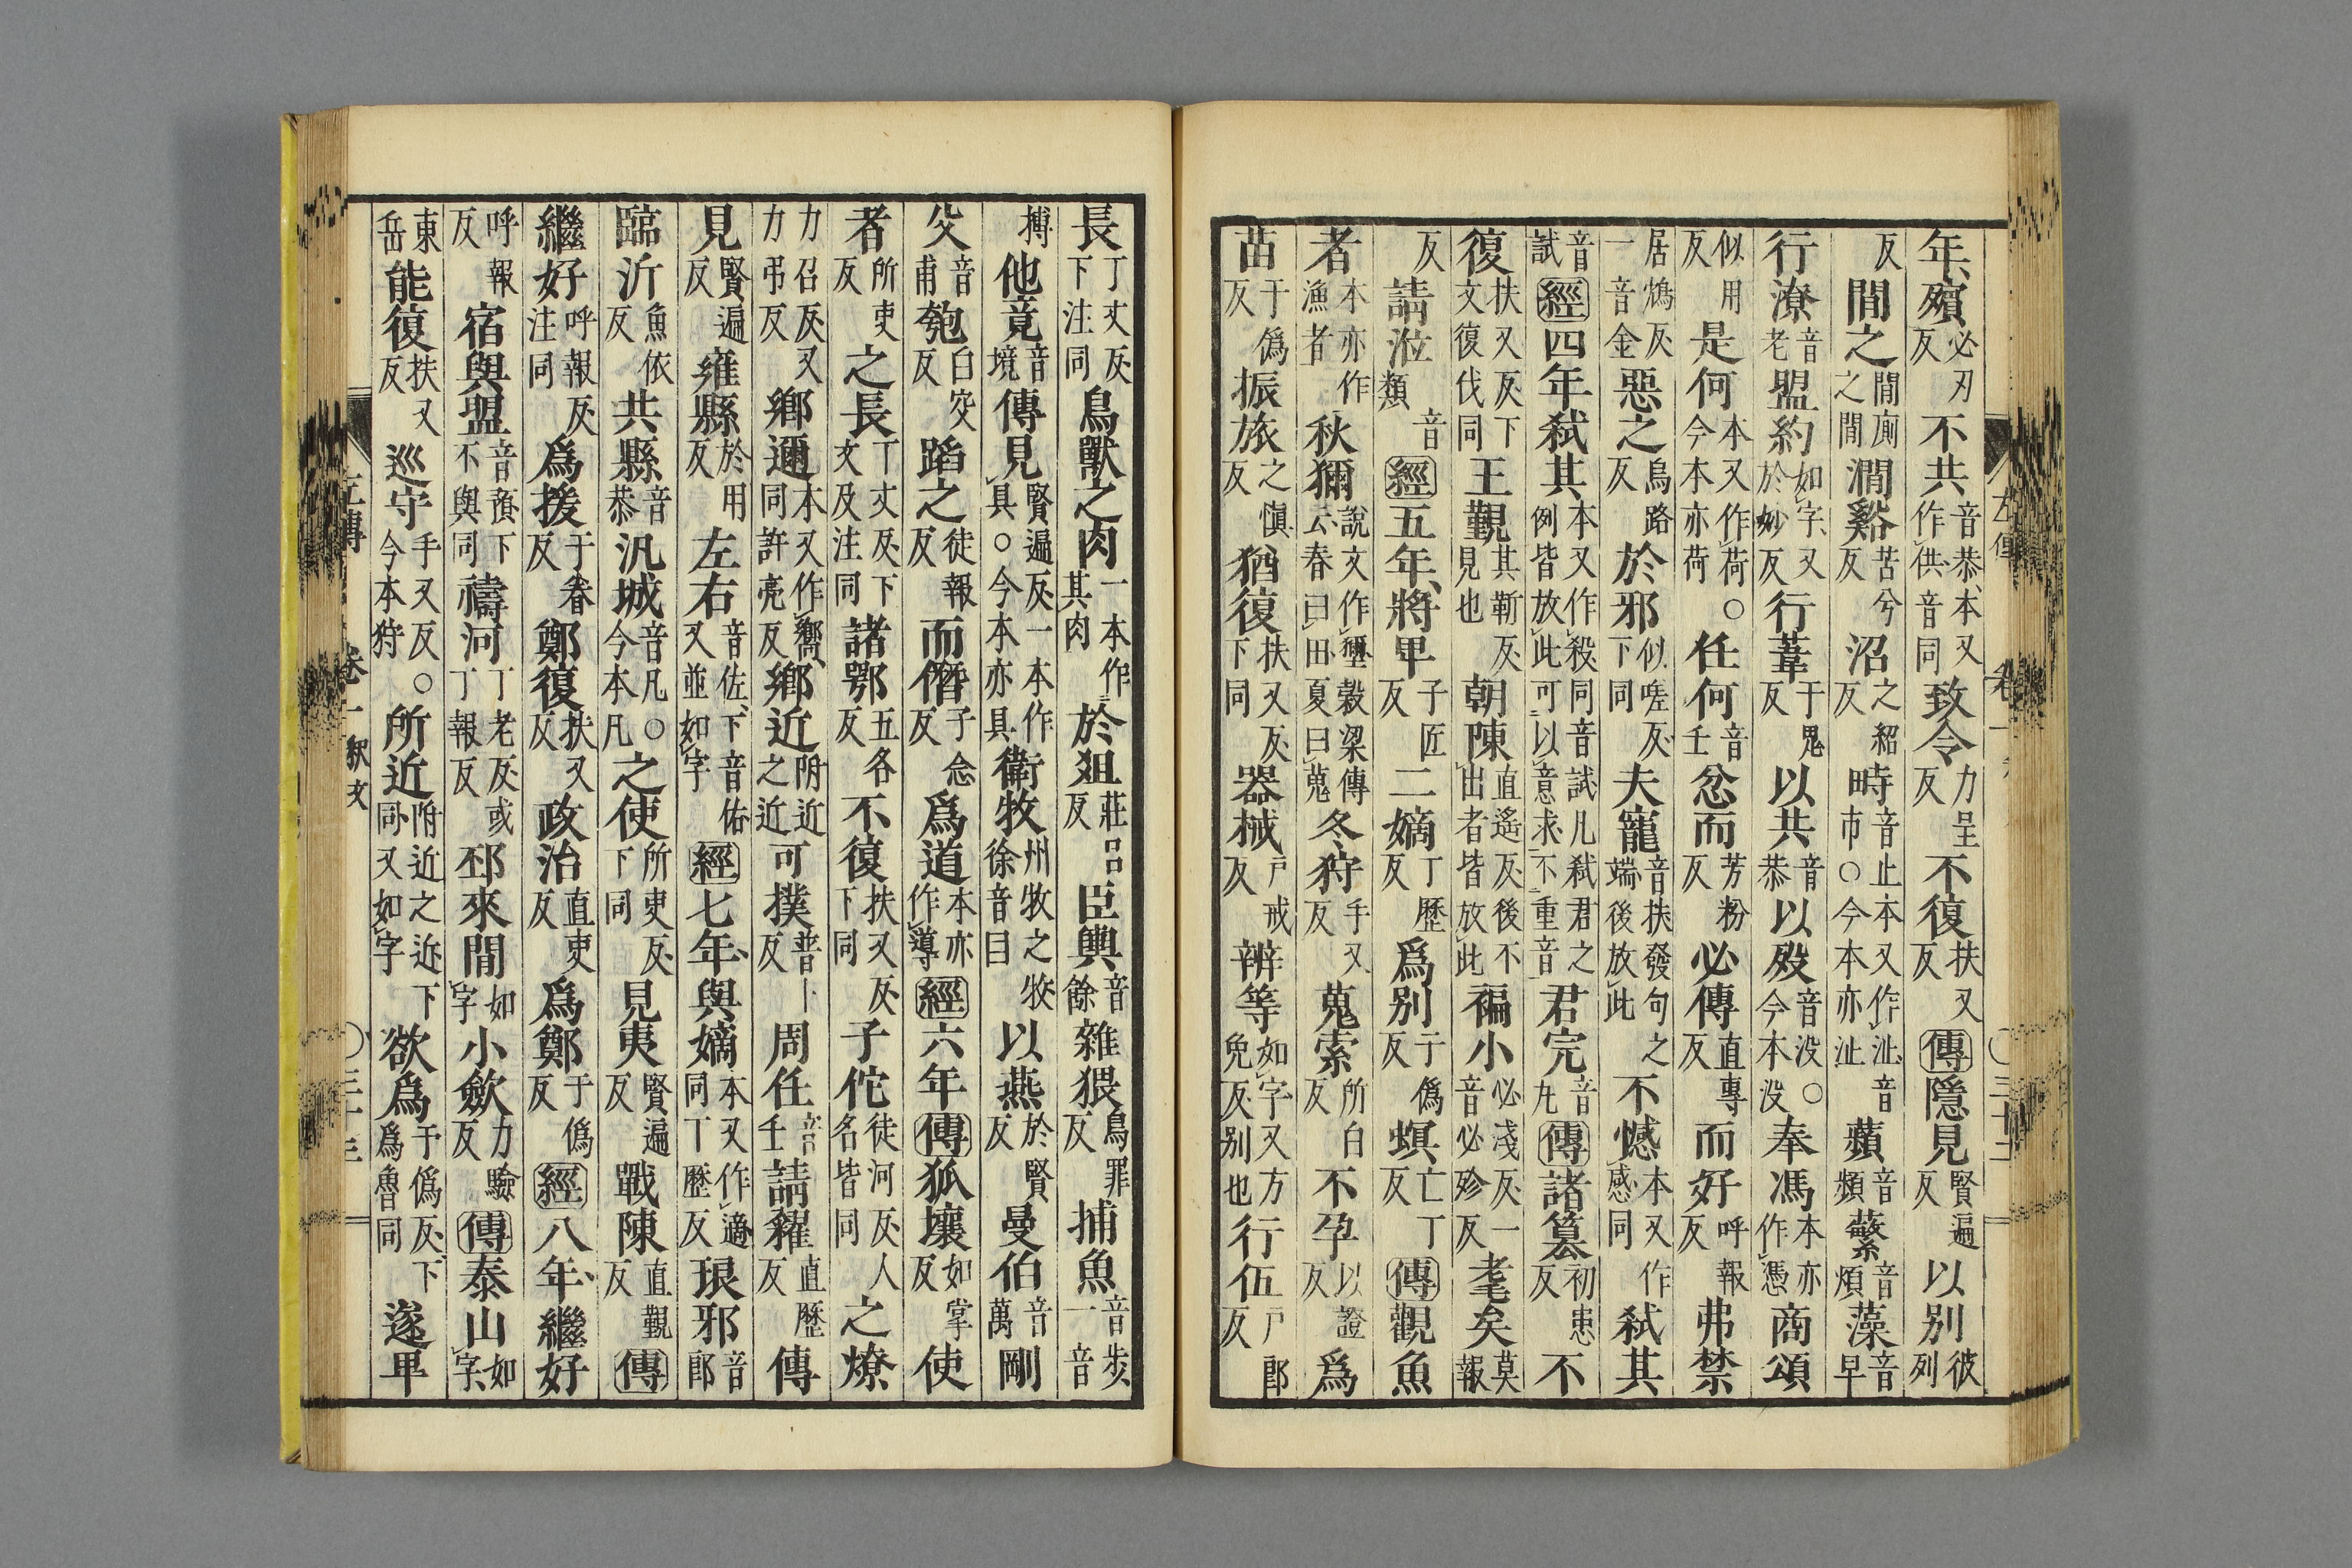 年、殯必刃反不共音恭、本又作供、音同致令力呈反不復扶又反傳隱見賢遍反以别彼列
反閒之閒廁之閒澗谿苦兮反沼之紹反畤音止本又作沚、音市○今本亦沚蘋音頻蘩音煩藻音早
行潦音老盟約如字、又於妙反行葦于鬼反以共音恭以殁音没○今本没奉馮本亦作憑商頌
似用反是何本又作荷○今本亦荷任何音壬忿而芳粉反必傳直專反而好呼報反弗禁
居鴆反一音金惡之烏路反於邪似嗟反下同夫寵音扶發句之端後放此不憾本又作感同弑其
音試經四年弑其本又作殺同音試凡弑君之例皆放此可以意求不重音君完音丸傳諸簒初患反不
復扶又反下文復伐同王覲其靳反見也朝陳直遥反後不出者皆放此褊小必淺反一音必殄反耄矣莫報
反請涖音類經五年、將甲子匠反二嫡丁歷反爲别于僞反螟亡丁反傳觀魚
者本亦作漁者秋獮說文作𤣀穀梁傳云春曰田夏曰蒐冬狩手又反蒐索所白反不孕以證反爲
苗于僞反振旅之愼反猶復扶又反下同器械戸戒反辨等如字又方免反别也行伍戸郎反
長丁丈反下注同鳥獸之肉一本作其肉於俎莊呂反臣輿音餘雜猥烏罪反捕魚音步一音
搏他竟音境傳見賢遍反一本作具○今本亦具衞牧州牧之牧徐音目以燕於賢反曼伯音萬剛
父音甫匏白交反蹈之徒報反而僭子念反爲道本亦作導經六年傳狐壤如掌反使
者所吏反之長丁丈反下文及注同諸鄂五各反不復扶又反下同子佗徒河反人名皆同之燎
力召反又力弔反鄉邇本又作嚮、同許亮反鄉近附近之近可撲普卜反周任音壬請糴直歷反傳
見賢遍反雍縣於用反左右音佐、下音佑又並如字經七年、與嫡本又作適同丁歷反琅邪音郎
臨沂魚依反共縣音恭汎城音凡○今本凡之使所吏反下同見夷賢遍反戰陳直覲反傳
繼好呼報反注同爲援于眷反鄭復扶又反政治直吏反爲鄭于僞反經八年、繼好
呼報反宿與盟音預下不與同禱河丁老反或丁報反邳來閒如字小歛力驗反傳泰山如字、
東岳能復扶又反巡守手又反○今本狩所近附近之近下同又如字欲爲于僞反下爲魯同遂甲